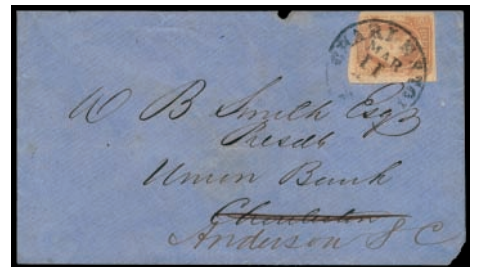 CHARLESTON
MAR
11
W B Smith Esq
Presdt
Union Bank
Charleston
Anderson S C